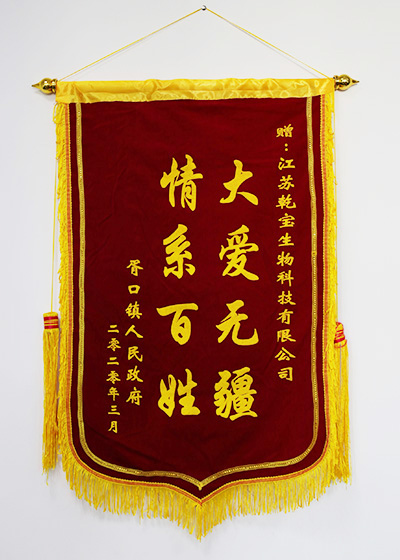 赠：江苏乾宝生物科技有限公司
大爱无疆
情系百姓
胥口镇人民政府
二零二零年三月